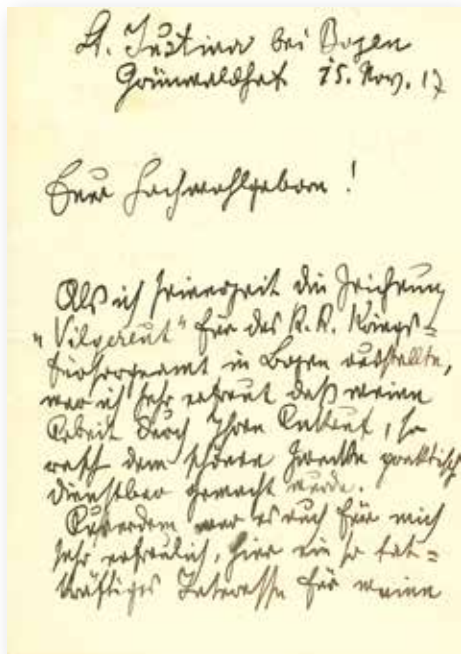 St. Justina bei Bozen
Grünwaldhof 15. Nov. 17
Euer Hochwohlgeboren!
Als ich seinerzeit die Zeichnung
"Vilgereut" für das K. K. Kriegs=
fürsorgeamt in Bozen ausstellte,
war ich sehr erfreut daß meine
Arbeit durch Ihren Ankauf, so
rasch dem schönen Zwecke praktisch
dienstbar gemacht wurde.
Außerdem war es auch für mich
sehr erfreulich, hier ein so tat=
kräftiges Interesse für meine